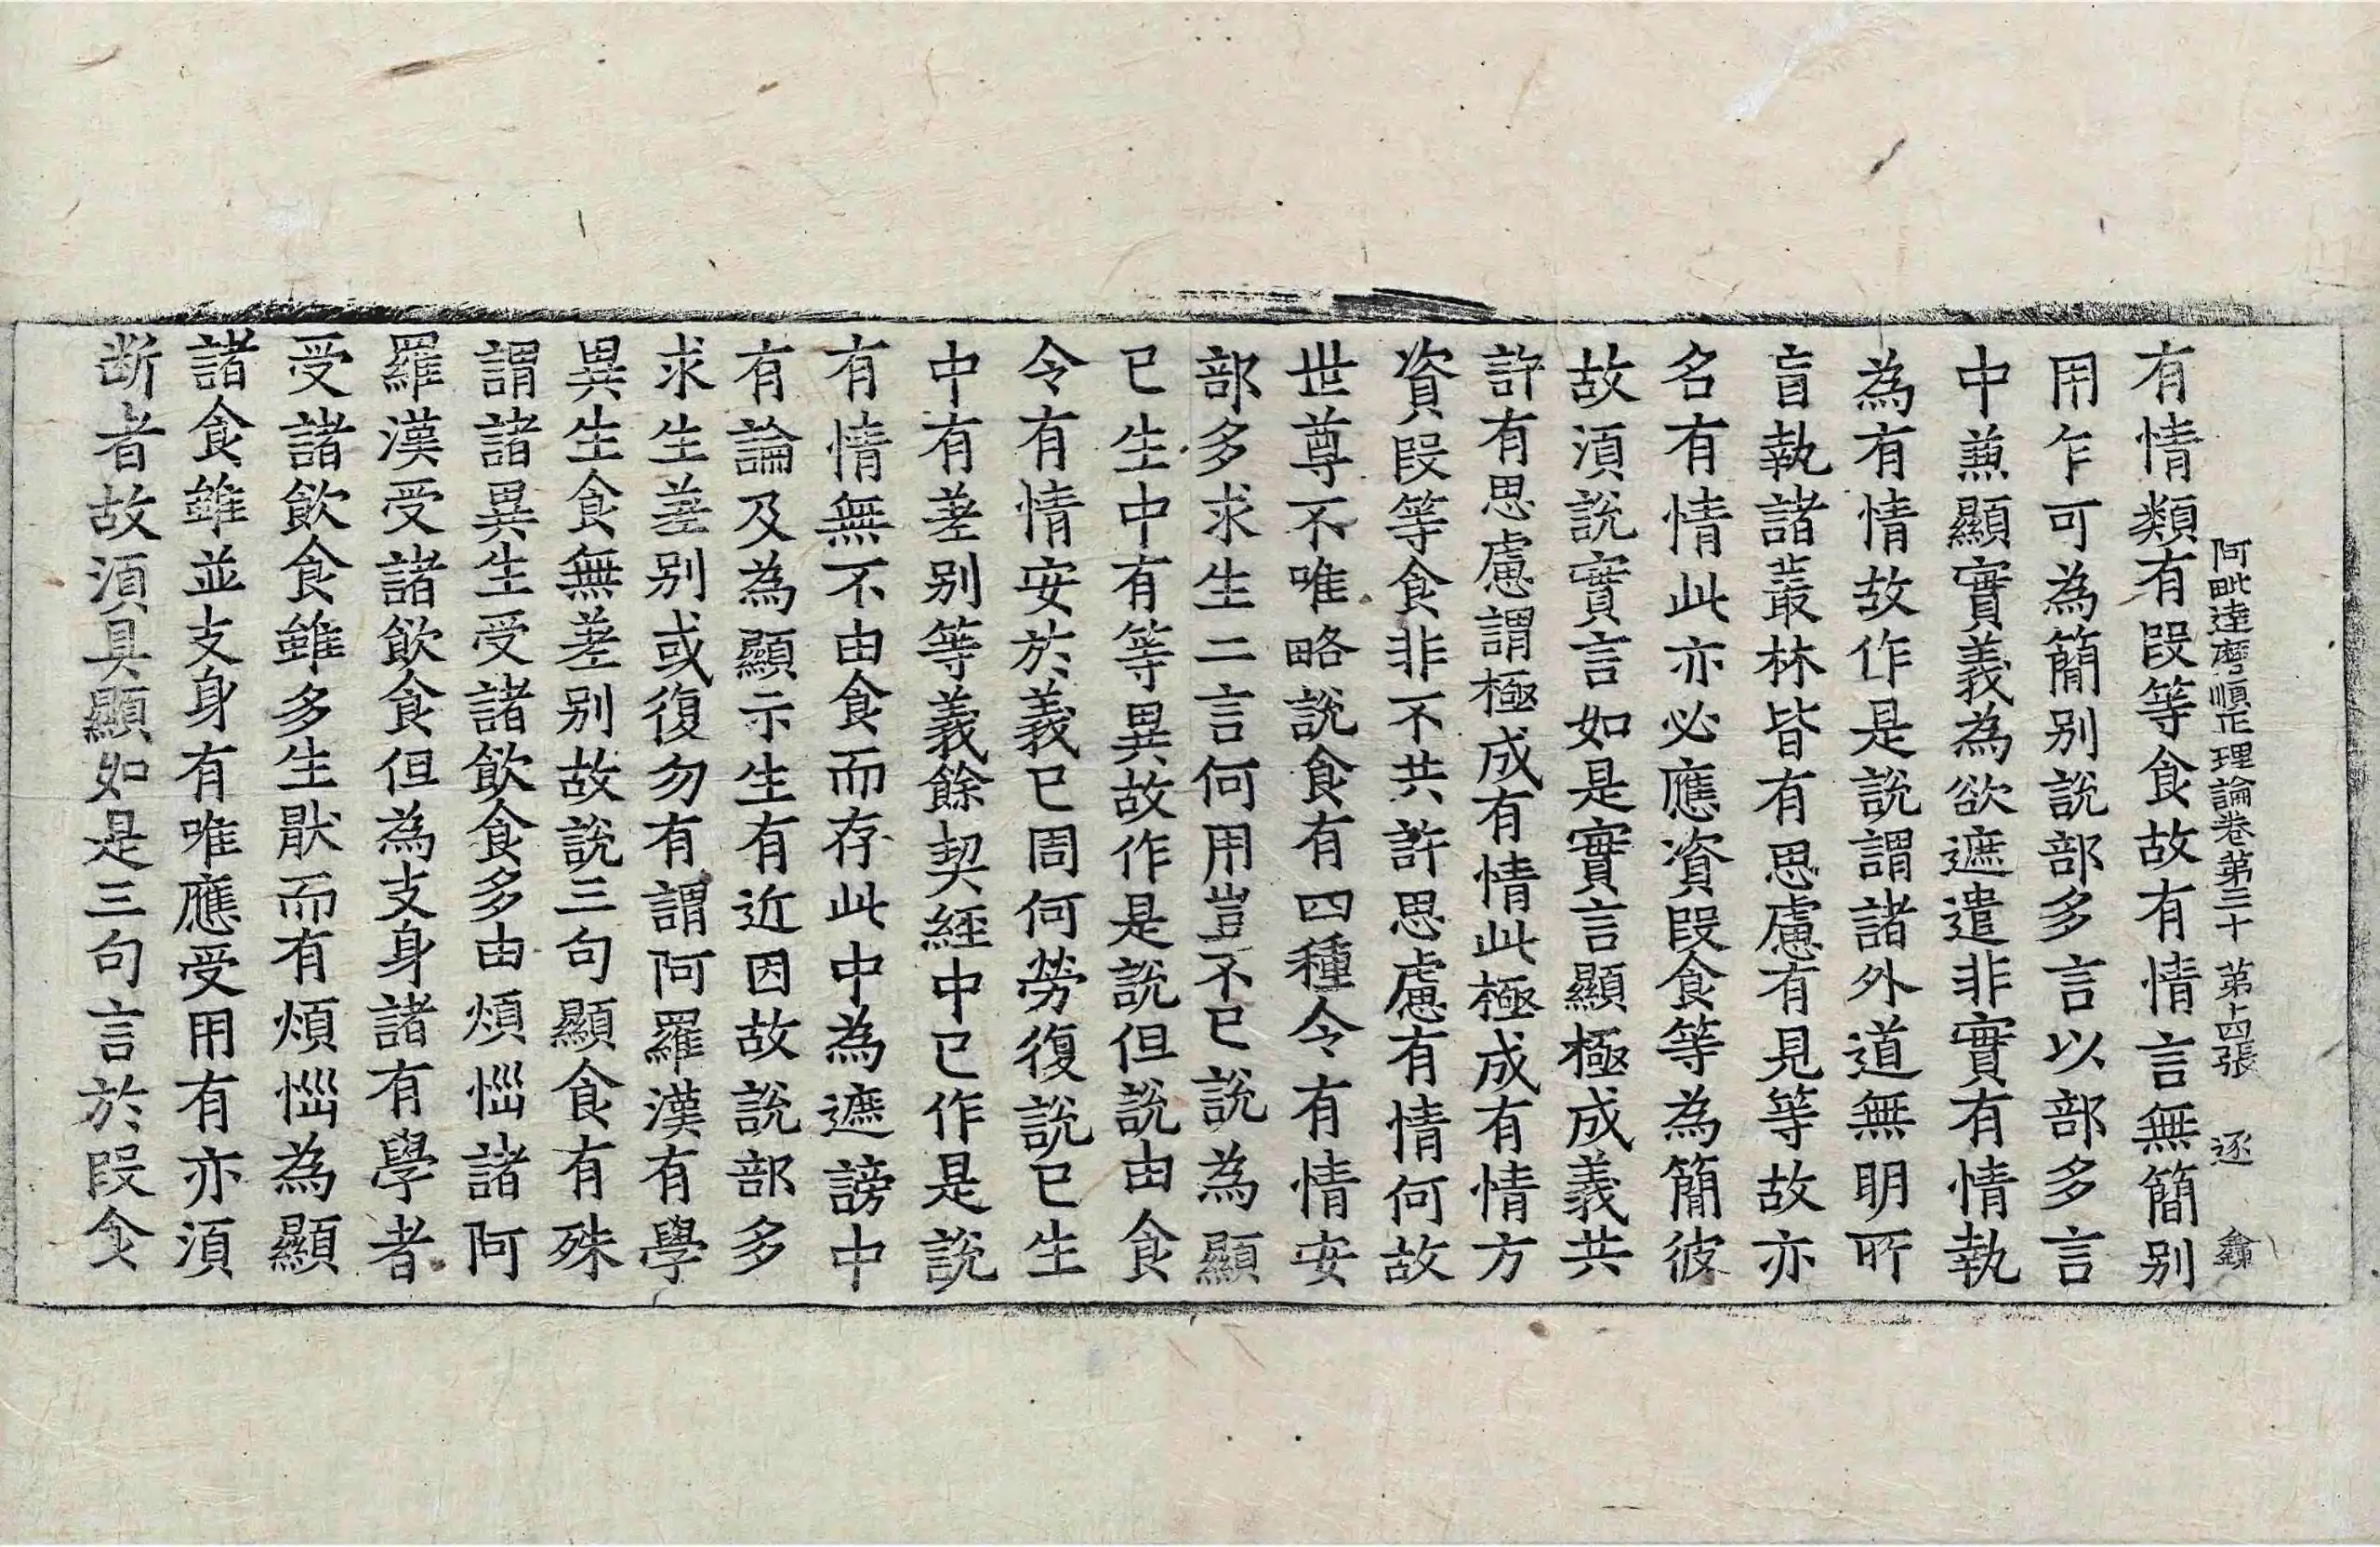 阿毗達磨順正理論卷第三十 第十四張 逐
有情類有段等食故有情言無簡別
用乍可為簡別說部多言以部多言
中兼顯實義為欲遮遣非實有情執
為有情故作是說謂諸外道無明所
盲執諸叢林皆有思慮有見等故亦
名有情此亦必應資段食等為簡彼
故須說實言如是實言顯極成義共
許有思慮謂極成有情此極成有情方
資段等食非不共許思慮有情何故
世尊不唯略說食有四種令有情安
部多求生二言何用豈不已說為顯
已生中有等異故作是說但說由食
令有情安於義已周何勞復說已生
中有差別等義餘契經中已作是說
有情無不由食而存此中為遮謗中
有論及為顯示生有近因故說部多
求生差別或復勿有謂阿羅漢有學
異生食無差別故說三句顯食有殊
謂諸異生受諸飲食多由煩惱諸阿
羅漢受諸飲食但為支身諸有學者
受諸飲食雖多生猒而有煩惱為顯
諸食雖並支身有唯應受用有亦須
断者故須具顯如是三句言於段食